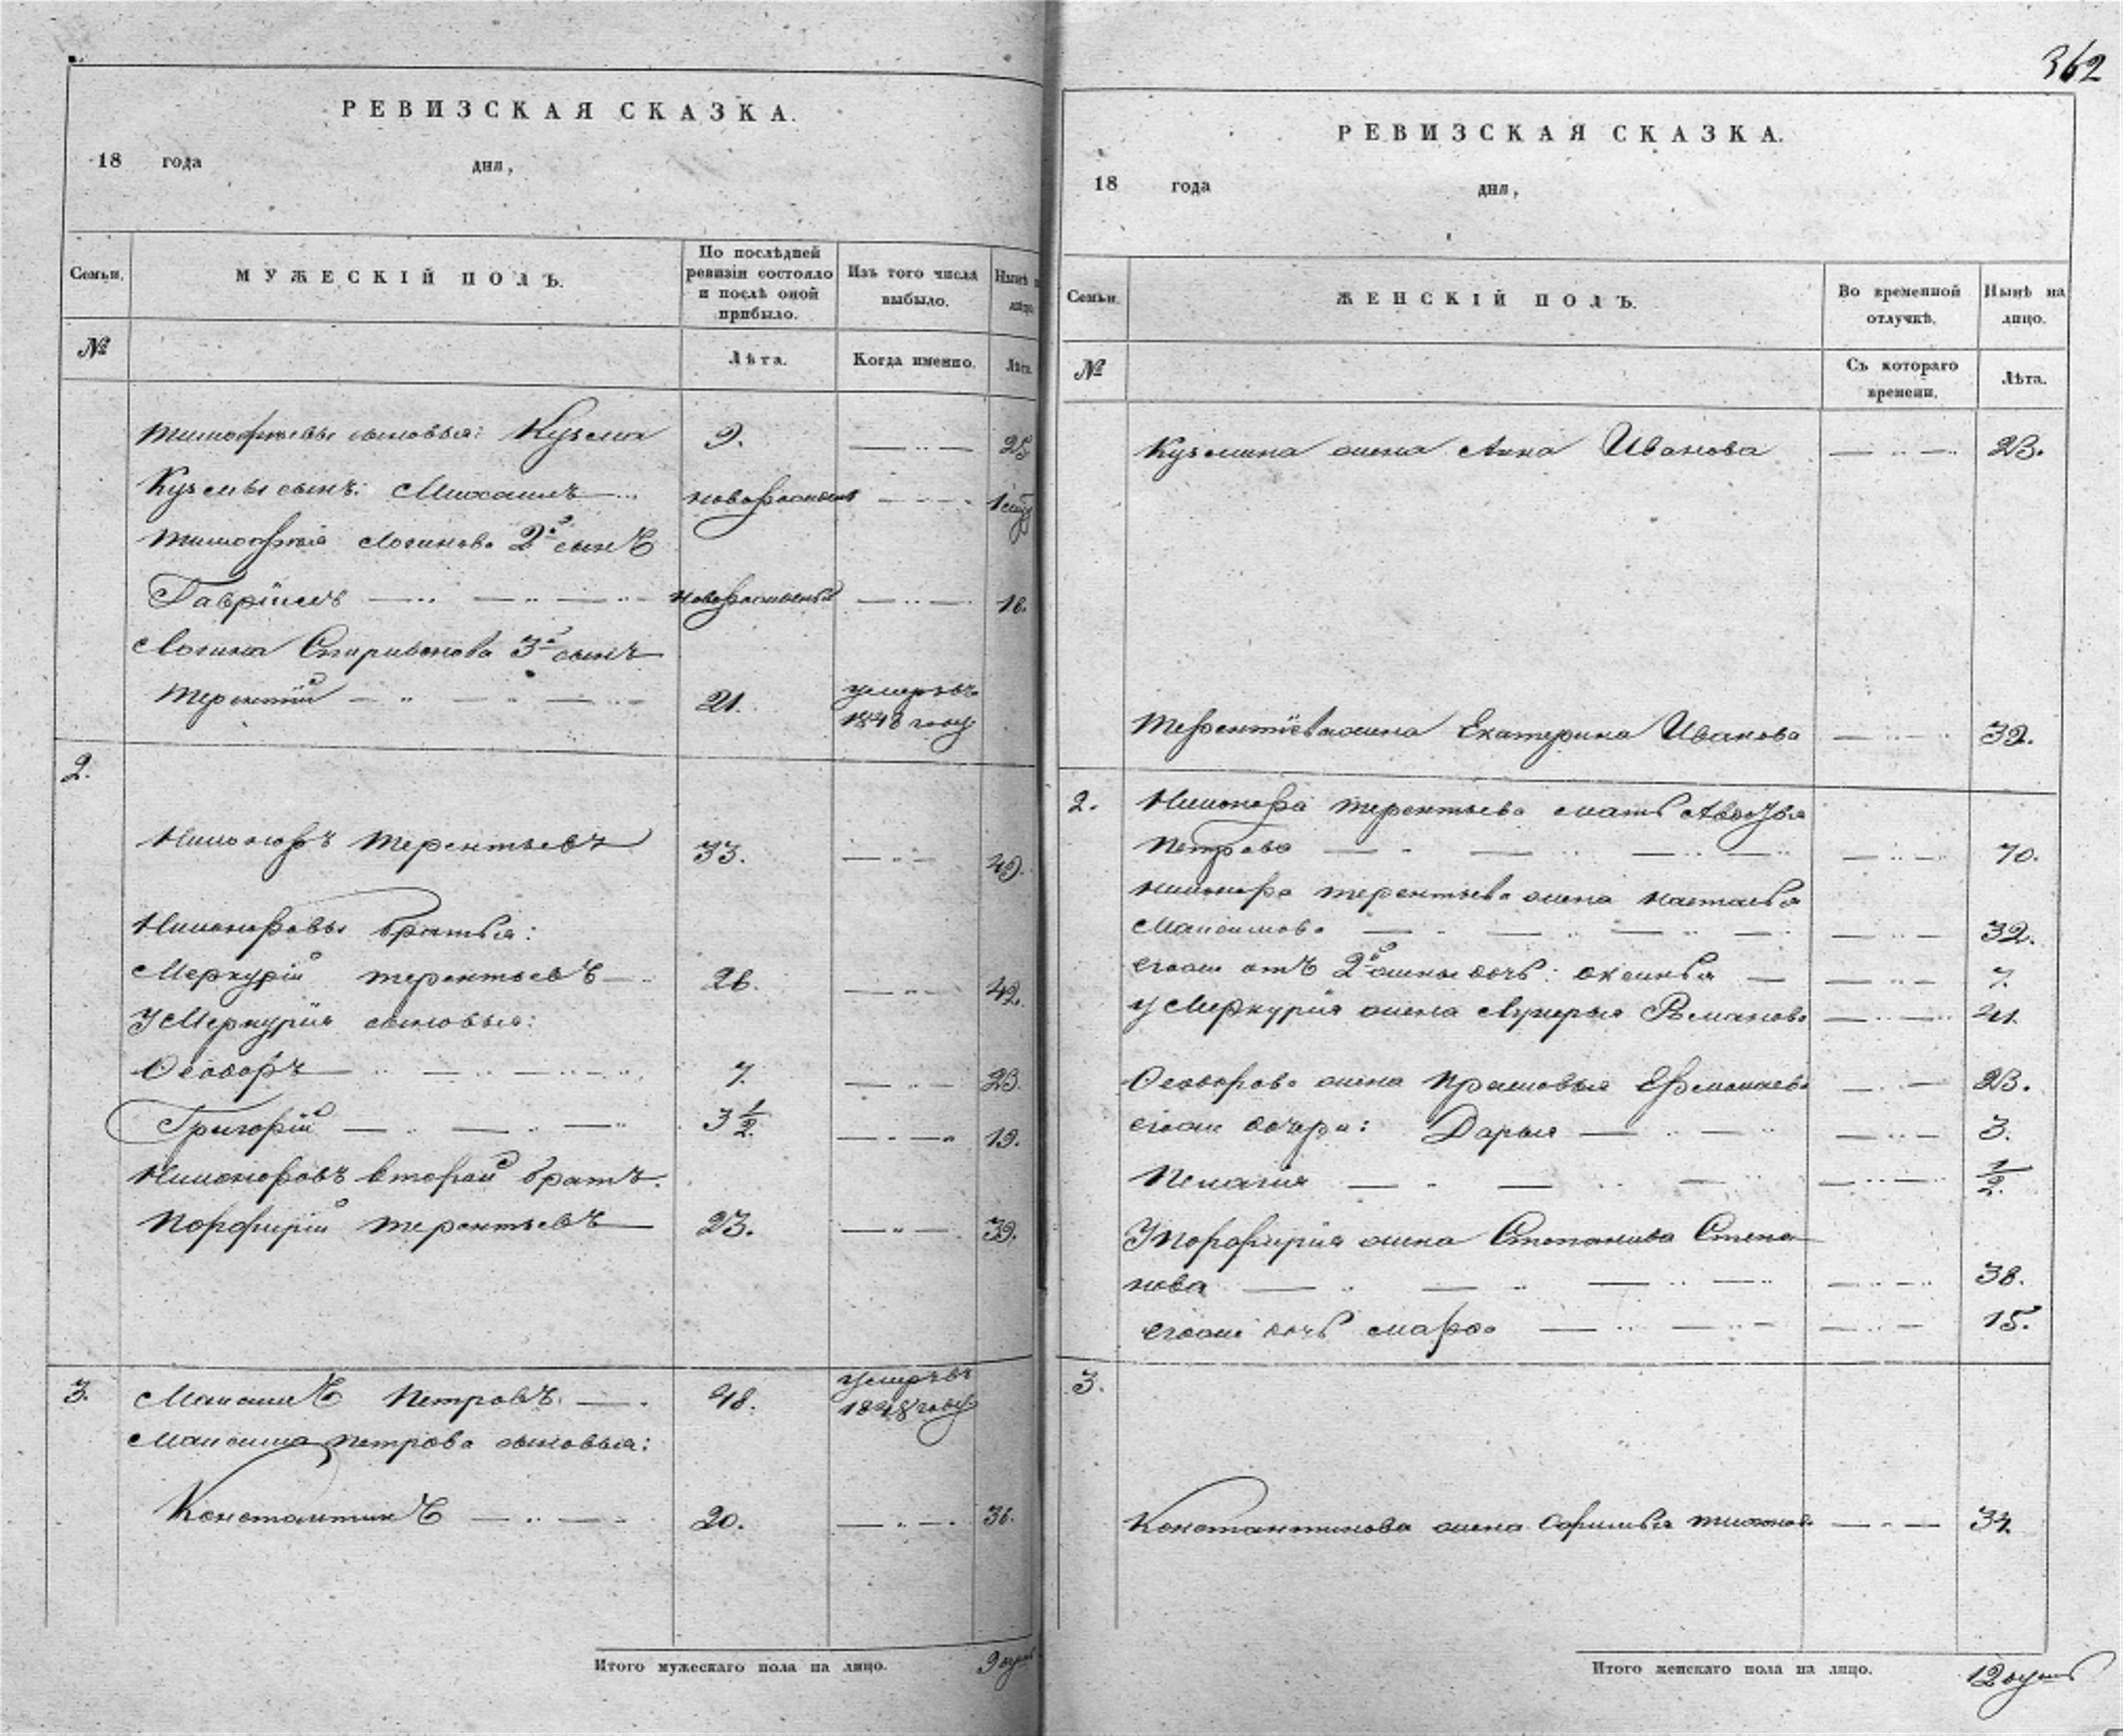 362
РЕВИЗСКАЯ СКАЗКА.
18 года дня,
Семьи. МУЖЕСКІЙ ПОЛЪ. По послѣдней ревизіи состояло и послѣ оной прибыло. Изъ того числа выбыло. Нынѣ на лицо.
№ Лѣта. Когда именно. Лѣта.
Тимофѣевы сыновья: Кузьма 9. 25
Кузьмы сынъ: Михаилъ новорожденъ 1
Тимофѣя Логинова 2й сынъ
Гавріилъ новорожденъ 16.
Логина Спиридонова 3й сынъ
Терентій 21. умеръ въ 1848 году
2.
Никаноръ Терентьевъ 33. 49.
Никаноровы братья:
Меркурій Терентьевъ 26. 42.
У Меркурія сыновья:
Ѳеодоръ 7. 23.
Григорій 3 1/2. 19.
Никаноровъ второй братъ.
Порфирій Терентьевъ 23. 39.
3. Максимъ Петровъ 48. умеръ въ 1848 году
Максима Петрова сыновья:
Константинъ 20. 36.
Итого мужескаго пола на лицо. 9 душъ
РЕВИЗСКАЯ СКАЗКА.
18 года дня,
Семьи. ЖЕНСКІЙ ПОЛЪ. Во временной отлучкѣ. Нынѣ на лицо.
№ Съ котораго времени. Лѣта.
Кузьмина жена Анна Иванова 23.
Терентіева жена Екатерина Иванова 39.
2. Никанора Терентьева мать Авдотья
Петрова 70.
Никанора Терентьева жена Настасья
Максимова 32.
его же отъ 2й жены дочь: Аксинья 7.
у Меркурія жена Лукерья Романова 41.
Ѳеодорова жена Прасковья 23.
его же дочери: Дарья 3.
Пелагія 1/2.
У Порфирія жена Степанида Степа
нова 38.
его же дочь Марфа 15.
3.
Константинова жена Тихонова 34.
Итого женскаго пола на лицо. 12 душъ